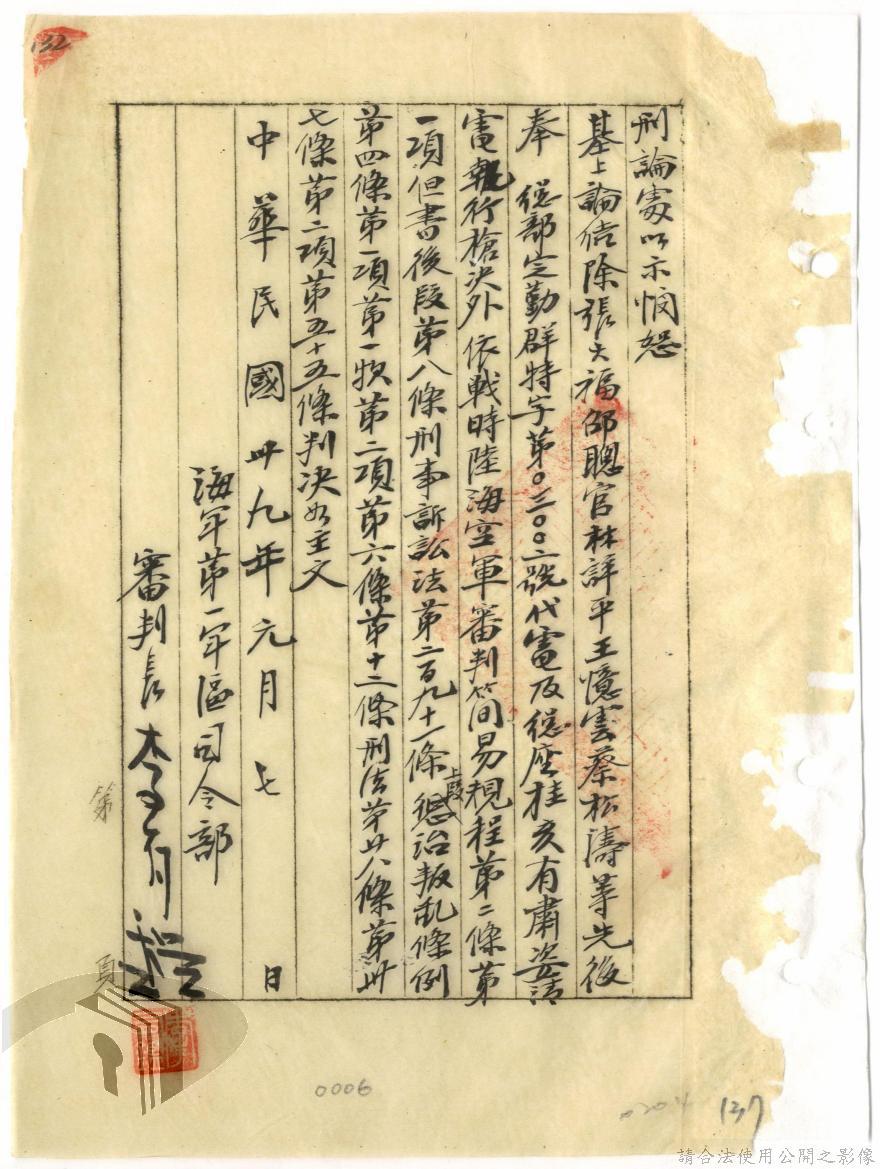 132
刑論處以示憫恕
基上論結除張大福邵聰官林詳平王憶雲蔡松濤等先後
奉 總部定勤群特字第〇三〇〇二號代電及總座桂亥有肅
電執行槍決外依戰時陸海空軍審判簡易規程第二條第
一項但書後段第八條刑事訴訟法第二百九十一條上段懲治叛亂條例
第四條第一項第一款第二項第六條第十二條刑法第廿八條第卅
七條第二項第五十五條判決如主文
中華民國卅九年元月七日
海軍第一軍區司令部
審判長李有程
第 頁
0006
0204
137
請合法使用公開之影像